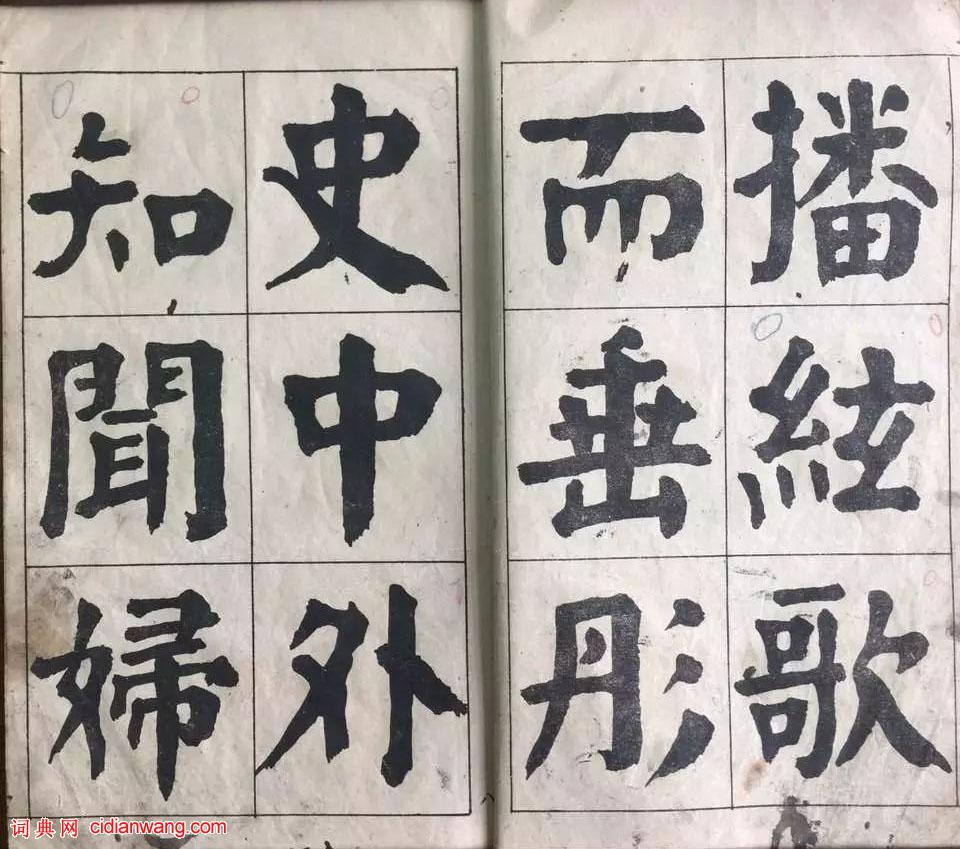 播絃歌
而垂彤
史中外
知聞婦
词典网 cidianwang.com